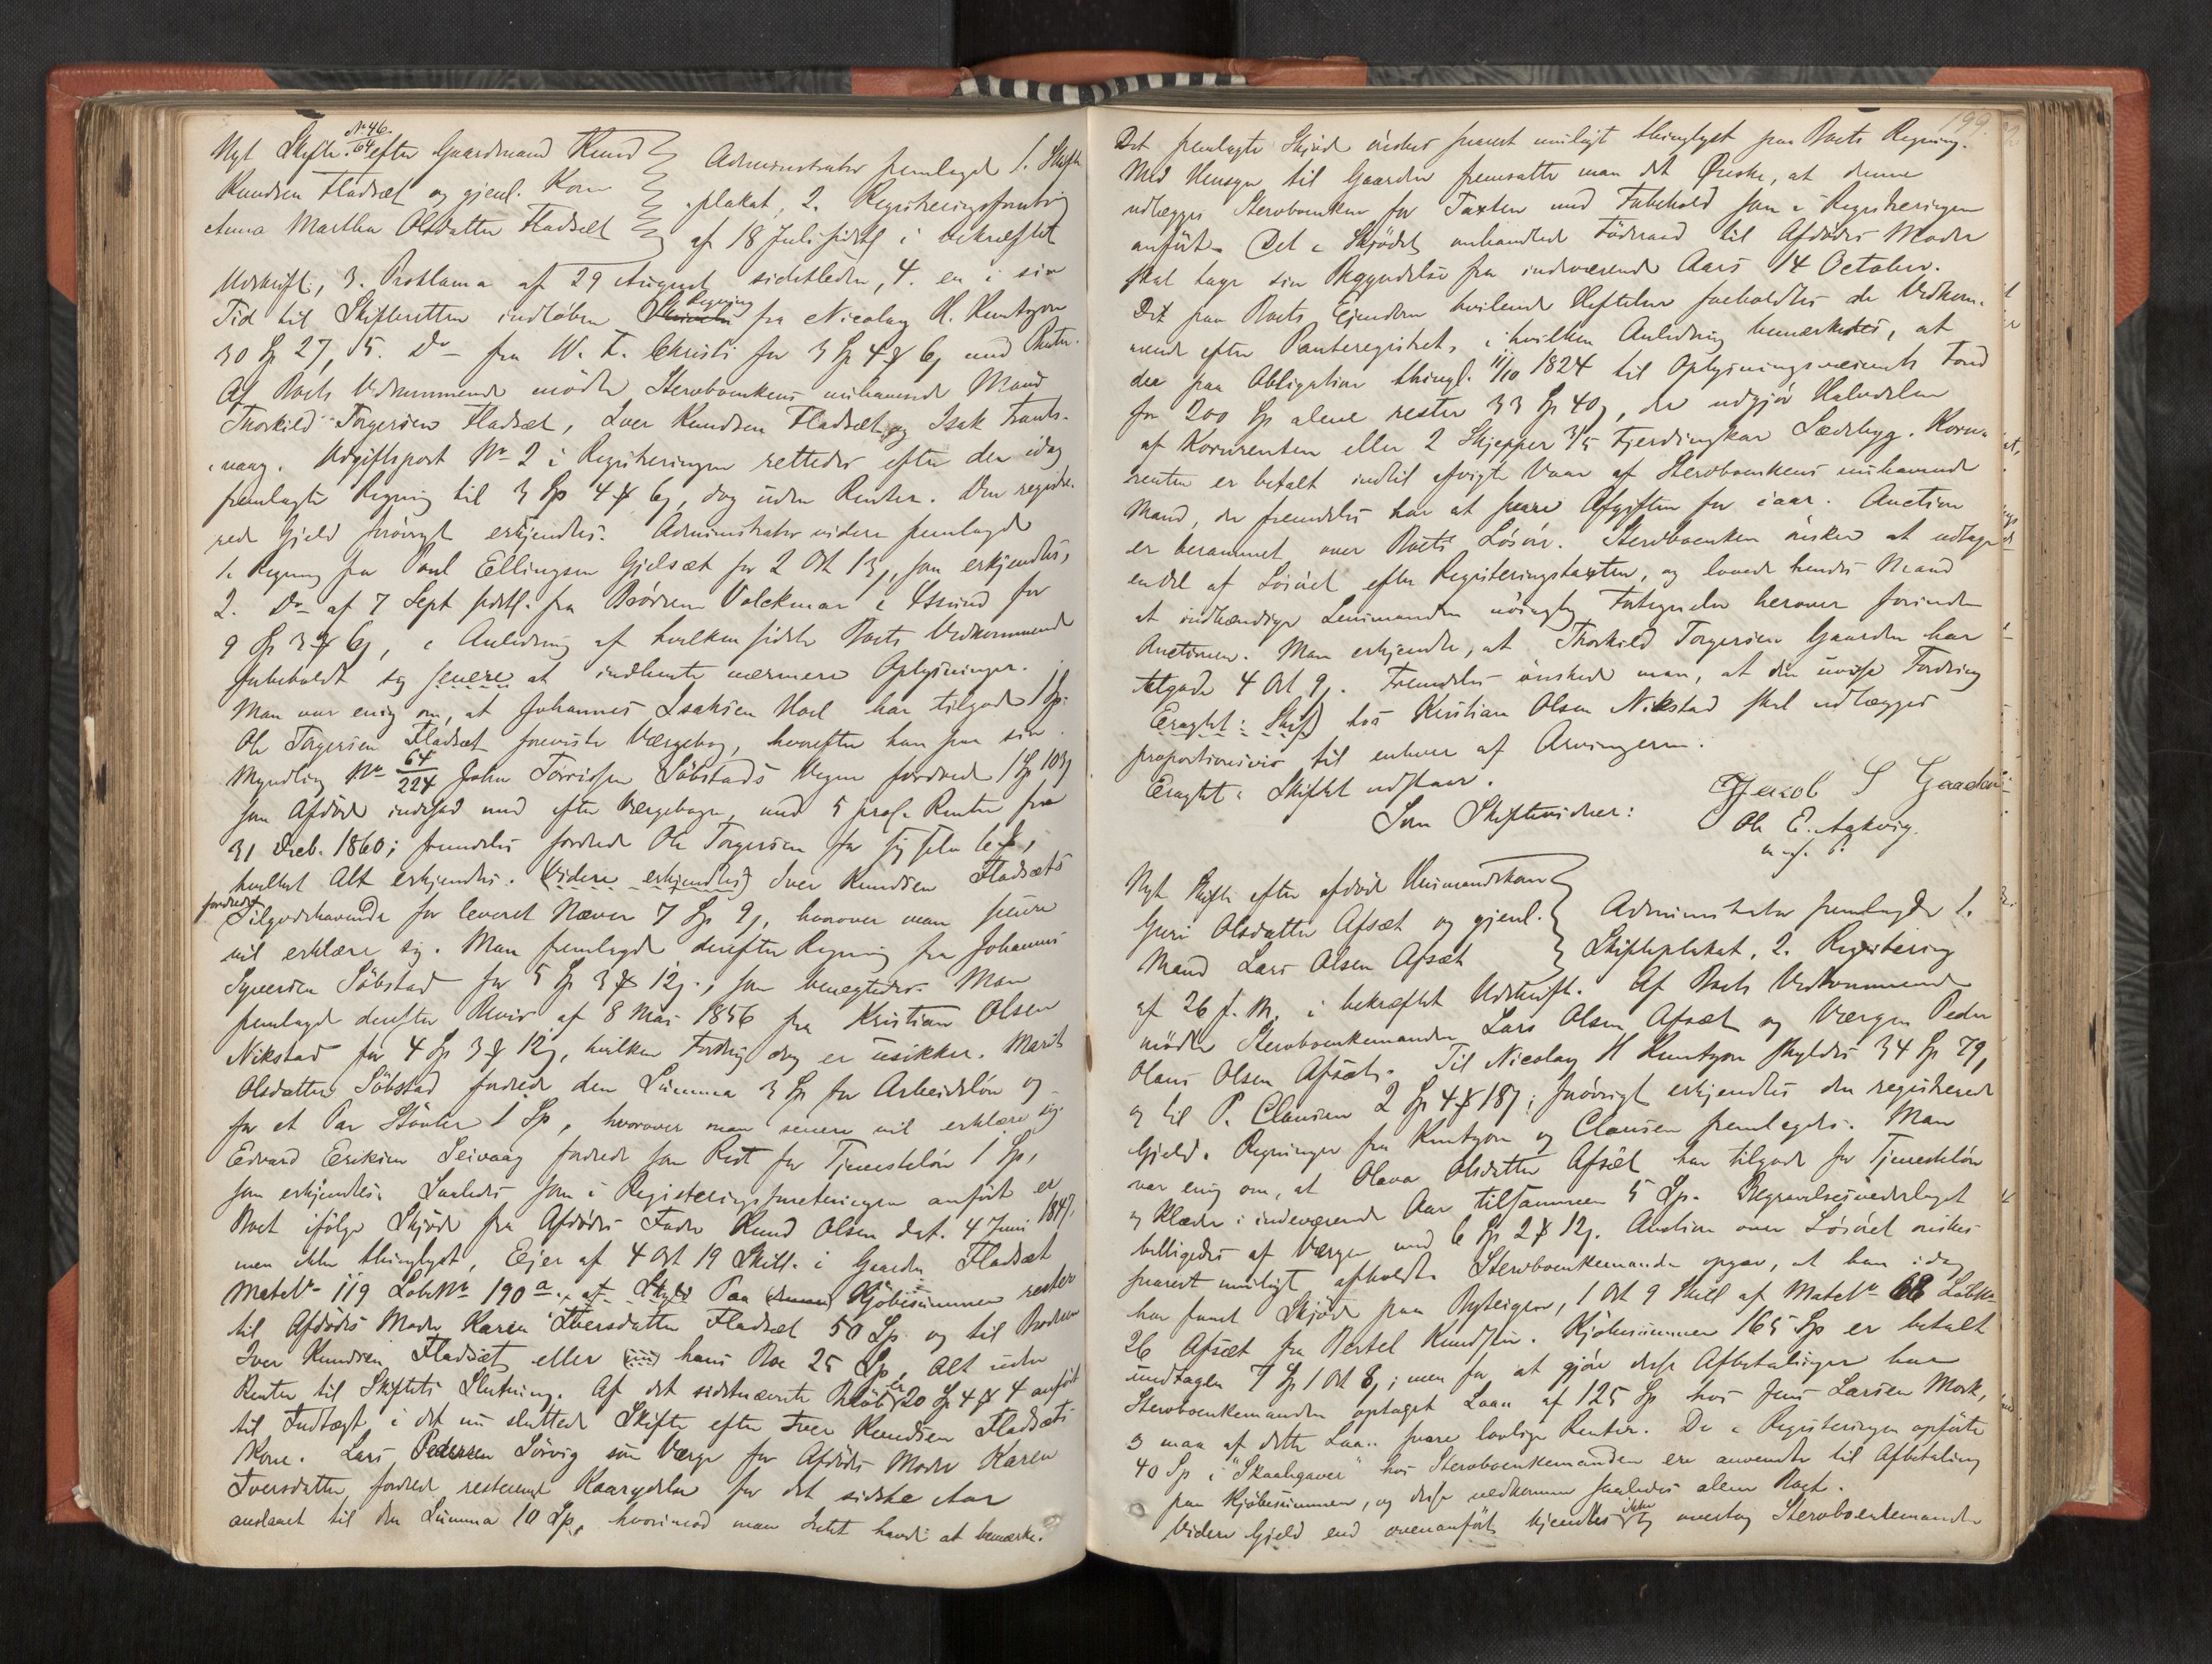 No 46.
Nyt Skifte 64 efter Gaardmand Knud
Knudsen Fladsæt og gjenl. Kone
Anna Martha Olsdatter Fladsæt
Administrator fremlagde 1. Skifte-
plakat, 2. Registreringsforretning
af 18 Juli sidstl i bekræftet
Udskrift, 3. Proklama af 29 August sidstleden, 4. en i sin
Tid til Skifteretten indløben Regning fra Nicolay H. Knutzon
30 Sp 27 ß, 5. Do fra W. F. Christi for 3 Sp 4 # 6 ß med Renter.
Af Boets Vedkommende mødte Stervboenkens nuhavende Mand
Thorkild Torgersen Fladsæt, Iver Knudsen Fladsæt og Isak
vaag. Udgiftspost No 2 i Registreringen rettedes efter den idag
fremlagte Regning til 3 Sp 4 # 6 ß, dog uden Renter. Den registre-
rede Gjeld forøvrigt erkjendtes. Administrator videre fremlagde
1. Regning fra Poul Ellingsen Gjelsæt for 2 Ort 13 ß, som erkjendtes,
2. Do af 7 Sept sidstl. fra Brødrene Volckmar i Xsund for
9 Sp 3 # 6 ß, i Anledning af hvilken sidste Boets Vedkommende
forbeholdt sig senere at indhente nærmere Oplysninger.
Man var enig om, at Johannes Isaksen Hoel har tilgode 1 Sp.
Ole Torgersen Fladsæt foreviste Værgebog, hvorefter han paa sin
Myndling No 64/224 John Torrissen Søbstads Vegne fordrede 1 Sp 103 ß
som Afdøde indestod med efter Værgebogen, med 5 prc. Renter fra
31 Decb. 1860; fremdeles fordrede Ole Torgersen for sig selv 6 #,
hvilket Alt erkjendtes. (Videre erkjendtes) Iver Knudsen Fladsæts
fordrede
Tilgodehavende for leveret Næver 7 Sp 9 ß, hvorover man senere
vil erklære sig. Man fremlagde derefter Regning fra Johannes
Syversen Søbstad for 5 Sp 3 # 12 ß, som benegtedes. Man
fremlagde derefter Bevis af 8 Mai 1856 fra Kristian Olsen
Nikstad for 4 Sp 3 # 12 ß, hvilken Fordring dog er usikker. Marit
Olsdatter Søbstad fordrede den Summa 3 Sp for Arbeidsløn og
for et Par Støvler 1 Sp, hvorover man senere vil erklære sig.
Edvard Eriksen Leivaag fordrede som Rest for Tjenesteløn 1 Sp,
som erkjendtes. Saaledes som i Registeringsforretningen anført er
Boet ifølge Skjøde fra Afdødes Fader Knud Olsen dat. 4 Juni 1847,
men ikke thinglyst, Eier af 4 Ort 19 Skill. i Gaarden Fladsæt
Matr No 119 Løbe No 190 a. af Skyld Paa Kjøbesummen rester
til Afdødes Moder Karen Iversdatter Fladsæt 50 Sp og til Broderen
Iver Knudsen Fladsæt eller hans Boe 25 Sp, Alt uden
Renter til Skiftets Slutning. Af det sidstnævnte Beløb er 20 Sp 4 # 4 anført
til Indtægt i det nu sluttede Skifte efter Iver Knudsen Fladsæts
Kone. Lars Pedersen Sørvig som Værge for Afdødes Moder Karen
Iversdatter, fordrede resterende Kaarydelse for det sidste Aar
anslaaet til den Summa 10 Sp, hvorimod man Intet havde at bemærke.
199.
Det fremlagte Skjøde ønskes snarest muligt thinglyst paa Boets Regning.
Med Hensyn til Gaarden fremsatte man det Ønske, at denne
udlægges Stervboenken for Taxten med Forbehold som i Registreringen
anført. Det i Skjødet omhandlede Føderaad til Afdødes Moder
skal tage sin Begyndelse fra indeværende Aars 14 October.
De paa Boets Eiendom hvilende Heftelser foreholdtes de Vedkom-
mende efter Panteregistret, i hvilken Anledning bemærkedes, at
der paa Obligation thingl. 11/10 1824 til Oplysningsvæsenets Fond
for 200 Sp alene rester 33 Sp 40 ß, der udgjør Halvdelen
af Kornrenten eller 2 Skjepper 3/5 Fjerdingkar Sædebyg. Korn-
renten er betalt indtil afvigte Vaar af Stervboenkens nuhavende
Mand, der fremdeles har at svare Afgiften for iaar. Auction
er berammet over Boets Løsøre. Stervboenken ønsker at udtage
endel af Løsøret efter Registeringstaxten, og lovede hendes Mand
at indhændige Lensmanden nøiagtig Fortegnelse herover forinden
Auctionen. Man erkjendte, at Thorkild Torgersen Gaarden har
tilgode 4 Ort 9 ß. Fremdeles ønskede man, at den uvisse Fordring
(Eragtet i Skif) hos Kristian Olsen Nikstad skal udlægges
proportionsvis til enhver af Arvingerne.
Eragtet: Skiftet udstaar.
Som Skiftevidner:
Jacob S
Ole E. Aakvig.
m. f. P.
Nyt Skifte efter afdøde Huusmandskone
Guri Olsdatter Afsæt og gjenl.
Mand Lars Olsen Afsæt
Administrator fremlagde 1.
Skifteplakat, 2. Registering
af 26 f. M. i bekræftet Udskrift. Af Boets Vedkommende
mødte Stervboenkemanden Lars Olsen Afsæt og Værgen Peder
Olaus Olsen Afsæt. Til Nicolay H Knutzon skyldes 34 Sp 79 ß,
og til P. Clausen 2 Sp 4 # 18 ß; forøvrigt erkjendtes den registrerede
Gjeld. Regninger fra Knutzon og Clausen fremlagdes. Man
var enig om, at Olava Olsdatter Afsæt har tilgode for Tjenesteløn
og Klæder i indeværende Aar tilsammen 5 Sp. Begravelsesvederlaget
billigedes af Værgen med 6 Sp 2 # 12 ß. Auction over Løsøret ønskes
snarest muligt afholdt. Stervboenkemanden opgav, at han idag
har faaet Skjøde paa Bygseleien, 1 Ort 9 Skill af Matr No 68 Løbe No
26 Afsæt fra Bertel Knudsen. Kjøbesummen 165 Sp er betalt
undtagen 7 Sp 1 Ort 8 ß; men for at gjøre disse Afbetalinger har
Stervboenkemanden optaget Laan af 125 Sp hos Jens Larsen Mork,
og maa af dette Laan svare lovlige Renter. De i Registeringen opførte
40 Sp i "Skaalegaver" hos Stervboenkemanden ere anvendte til Afbetaling
paa Kjøbesummen, og disse vedkommer saaledes alene Boet.
Videre Gjeld end ovenanført kjendtes ikke og overtog Stervboenkemanden